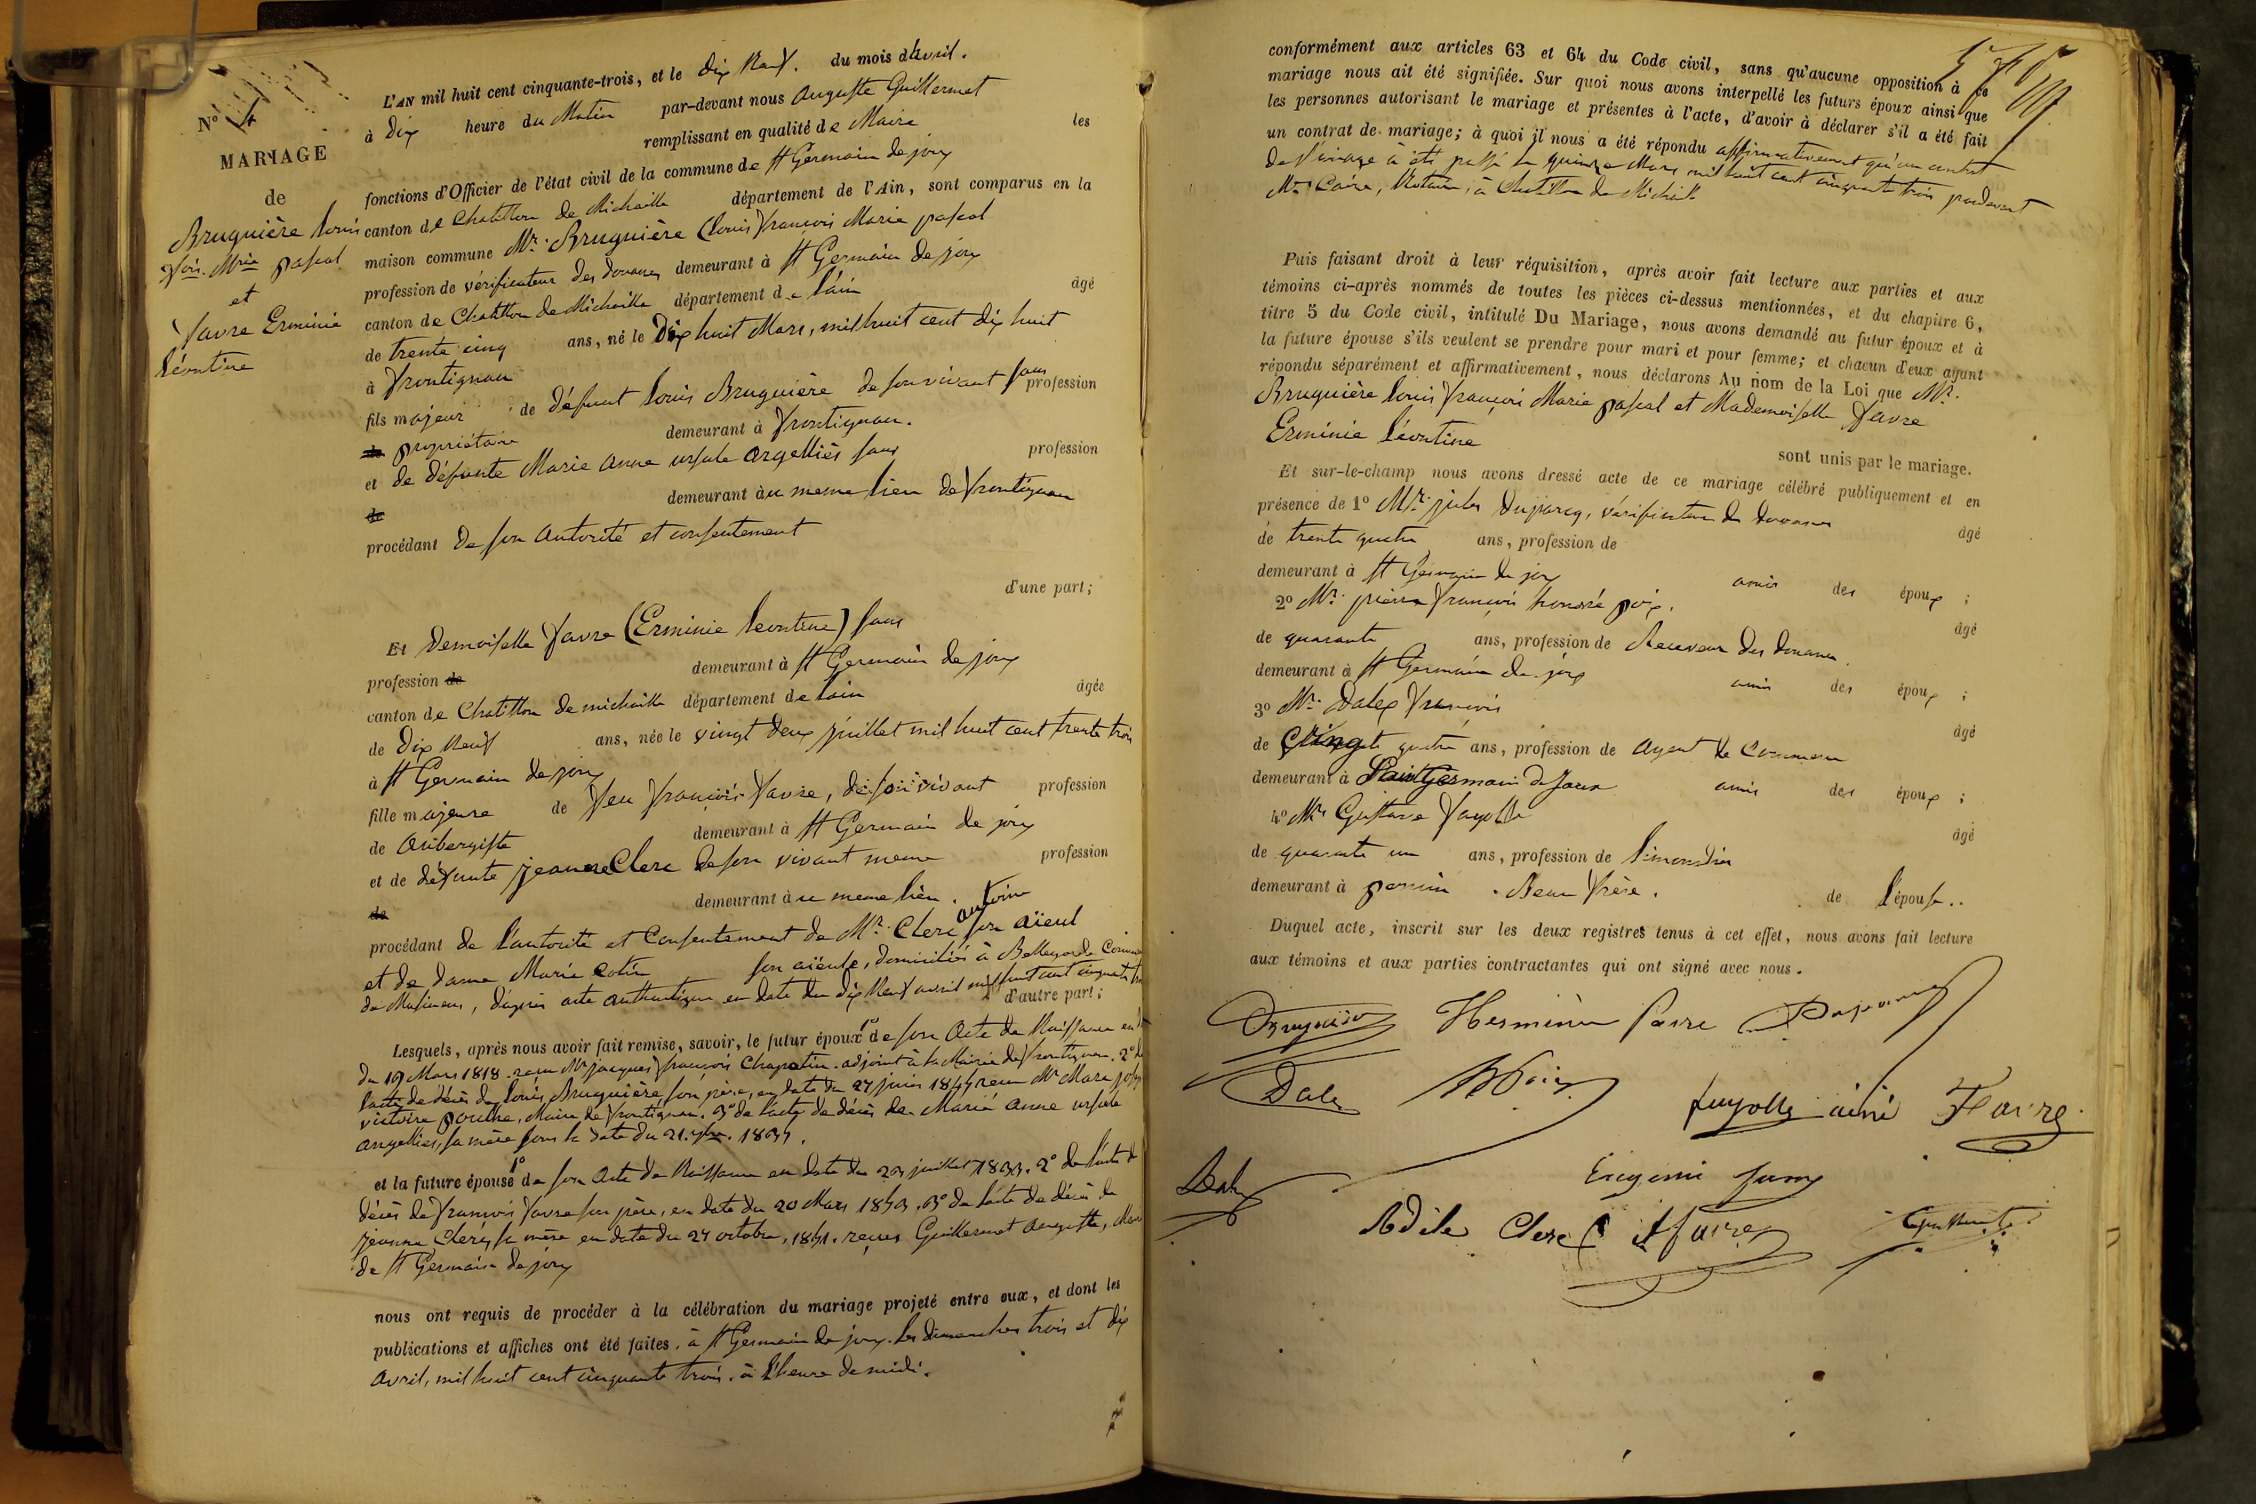 N° 4
MARIAGE
de
Bruguière Louis
fois. Mrie pascal
et
favre Erminie
Léontine
L'AN mil huit cent cinquante-trois, et le dix Neuf. du mois d'avril.
à dix heure du Matin par-devant nous auguste Guillermet
remplissant en qualité de Maire les
fonctions d'Officier de l'état civil de la commune de St Germain de joux
canton de Chatillon de Michaille département de l'Ain, sont comparus en la
maison commune Mr. Bruguière (Louis françois Marie pascal
profession de vérificateur des douanes demeurant à St Germain de joux
canton de Chatillon de Michaille département de l'ain âgé
de trente cinq ans, né le Dix huit Mars, mil huit cent dix huit
à frontignan
fils majeur de défunt Louis Bruguière de son vivant sans profession
de propriétaire demeurant à frontignan.
et de défunte Marie anne ursule argelliès sans profession
de demeurant au meme lieu de frontignan
procédant de son autorité et consentement
d'une part;
Et demoiselle favre (Erminie Leontine) sans
profession de demeurant à St Germain de joux
canton de Chatillon de michaille département de l'ain âgée
de dix Neuf ans, née le vingt deux juillet mil huit cent trente trois
à St Germain de joux
fille majeure de feu françois favre, de son vivant profession
de aubergiste demeurant à St Germain de joux
et de défunte jeanne Clerc de son vivant meme profession
de demeurant au meme lieu.
procédant de l'autorité et Consentement de Mr. Clerc antoine son aïeul
et de dame Marie cotin son aïeule, domiciliés à Bellegarde Commune
de Musinens, d'après acte authentique en date du dix Neuf avril mil huit cent cinquante trois
d'autre part;
Lesquels, après nous avoir fait remise, savoir, le futur époux 1° de son acte de Naissance en date
du 19 Mars 1818. reçu Mr jacques françois Chapotin adjoint à la Mairie de frontignan. 2° de
l'acte de décès de Louis Bruguière son père, en date du 27 juin 1845 reçu Mr Marc joseph
victoire poulhe, Maire de frontignan. 3° de l'acte de décès de Marie anne ursule
argelliès, sa mère sous la date du 21
et la future épouse 1° de son acte de Naissance en date du 23 juillet 1833. 2° de l'acte de
décès de françois favre son père, en date du 20 Mars 1843. 3° de l'acte de décès de
jeanne Clerc, sa mère en date du 27 octobre, 1841. reçues Guillermet auguste, Maire
de St Germain de joux
nous ont requis de procéder à la célébration du mariage projeté entre eux, et dont les
publications et affiches ont été faites, à St Germain de joux. les dimanches trois et dix
avril, mil huit cent cinquante trois. à l'heure de midi.
conformément aux articles 63 et 64 du Code civil, sans qu'aucune opposition à ce
mariage nous ait été signifiée. Sur quoi nous avons interpellé les futurs époux ainsi que
les personnes autorisant le mariage et présentes à l'acte, d'avoir à déclarer s'il a été fait
un contrat de mariage; à quoi il nous a été répondu affirmativement qu'un contrat
de mariage à été passé le quinze Mars mil huit cent cinquante trois pardevant
Mr. Caire, Notaire, à Chatillon de Michaille
Puis faisant droit à leur réquisition, après avoir fait lecture aux parties et aux
témoins ci-après nommés de toutes les pièces ci-dessus mentionnées, et du chapitre 6,
titre 5 du Code civil, intitulé Du Mariage, nous avons demandé au futur époux et à
la future épouse s'ils veulent se prendre pour mari et pour femme; et chacun d'eux ayant
répondu séparément et affirmativement, nous déclarons Au nom de la Loi que Mr.
Bruguière Louis françois Marie pascal et Mademoiselle favre
Erminie Léontine
sont unis par le mariage.
Et sur-le-champ nous avons dressé acte de ce mariage célébré publiquement et en
présence de 1° Mr. jules Dujarcq, vérificateur des douanes âgé
de trente quatre ans, profession de
demeurant à St Germain de joux amis des époux ;
2° Mr. pierre françois honoré poix. âgé
de quarante ans, profession de Receveur des douanes.
demeurant à St Germain de joux amis des époux ;
3° Mr. Dalex françois âgé
de quatre ans, profession de agent de Commerce
demeurant à Saint Germain de Joux amis des époux ;
4° Mr Gustave fayolle âgé
de quarante un ans, profession de limonadier
demeurant à Beau frère. de l'épouse..
Duquel acte, inscrit sur les deux registres tenus à cet effet, nous avons fait lecture
aux témoins et aux parties contractantes qui ont signé avec nous.
Bruguière Herminie favre
Dalex fayolle aimé Favre
Dalex Eugenie
Adèle Clerc favre Guillermet